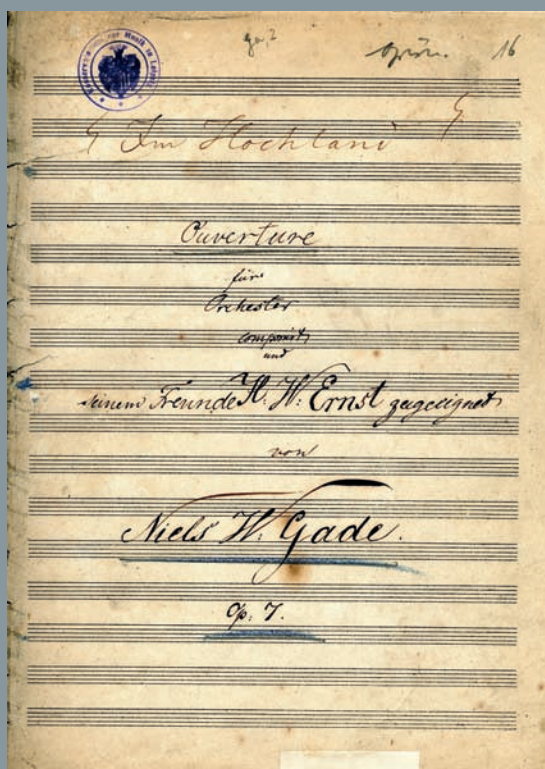 16
Im Hochland
Ouverture
für
Orchester
componirt
und
seinem Freunde H. W. Ernst zugeeignet
von
Niels W. Gade.
Op. 7.